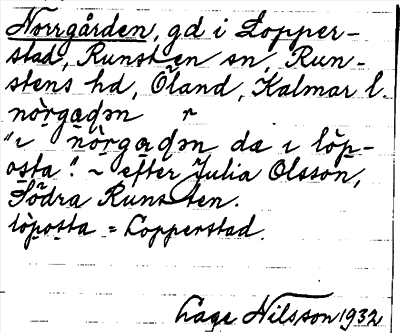 Norrgården, gd i Lopper-
stad, Runsten sn, Run-
stens hd, Öland, Kalmar l.
nòrgaḍən r
"i nòrgaḍən da i löp-
osta". ~ efter Julia Olsson,
Södra Runsten.
löposta = Lopperstad.
Lage Nilsson 1932